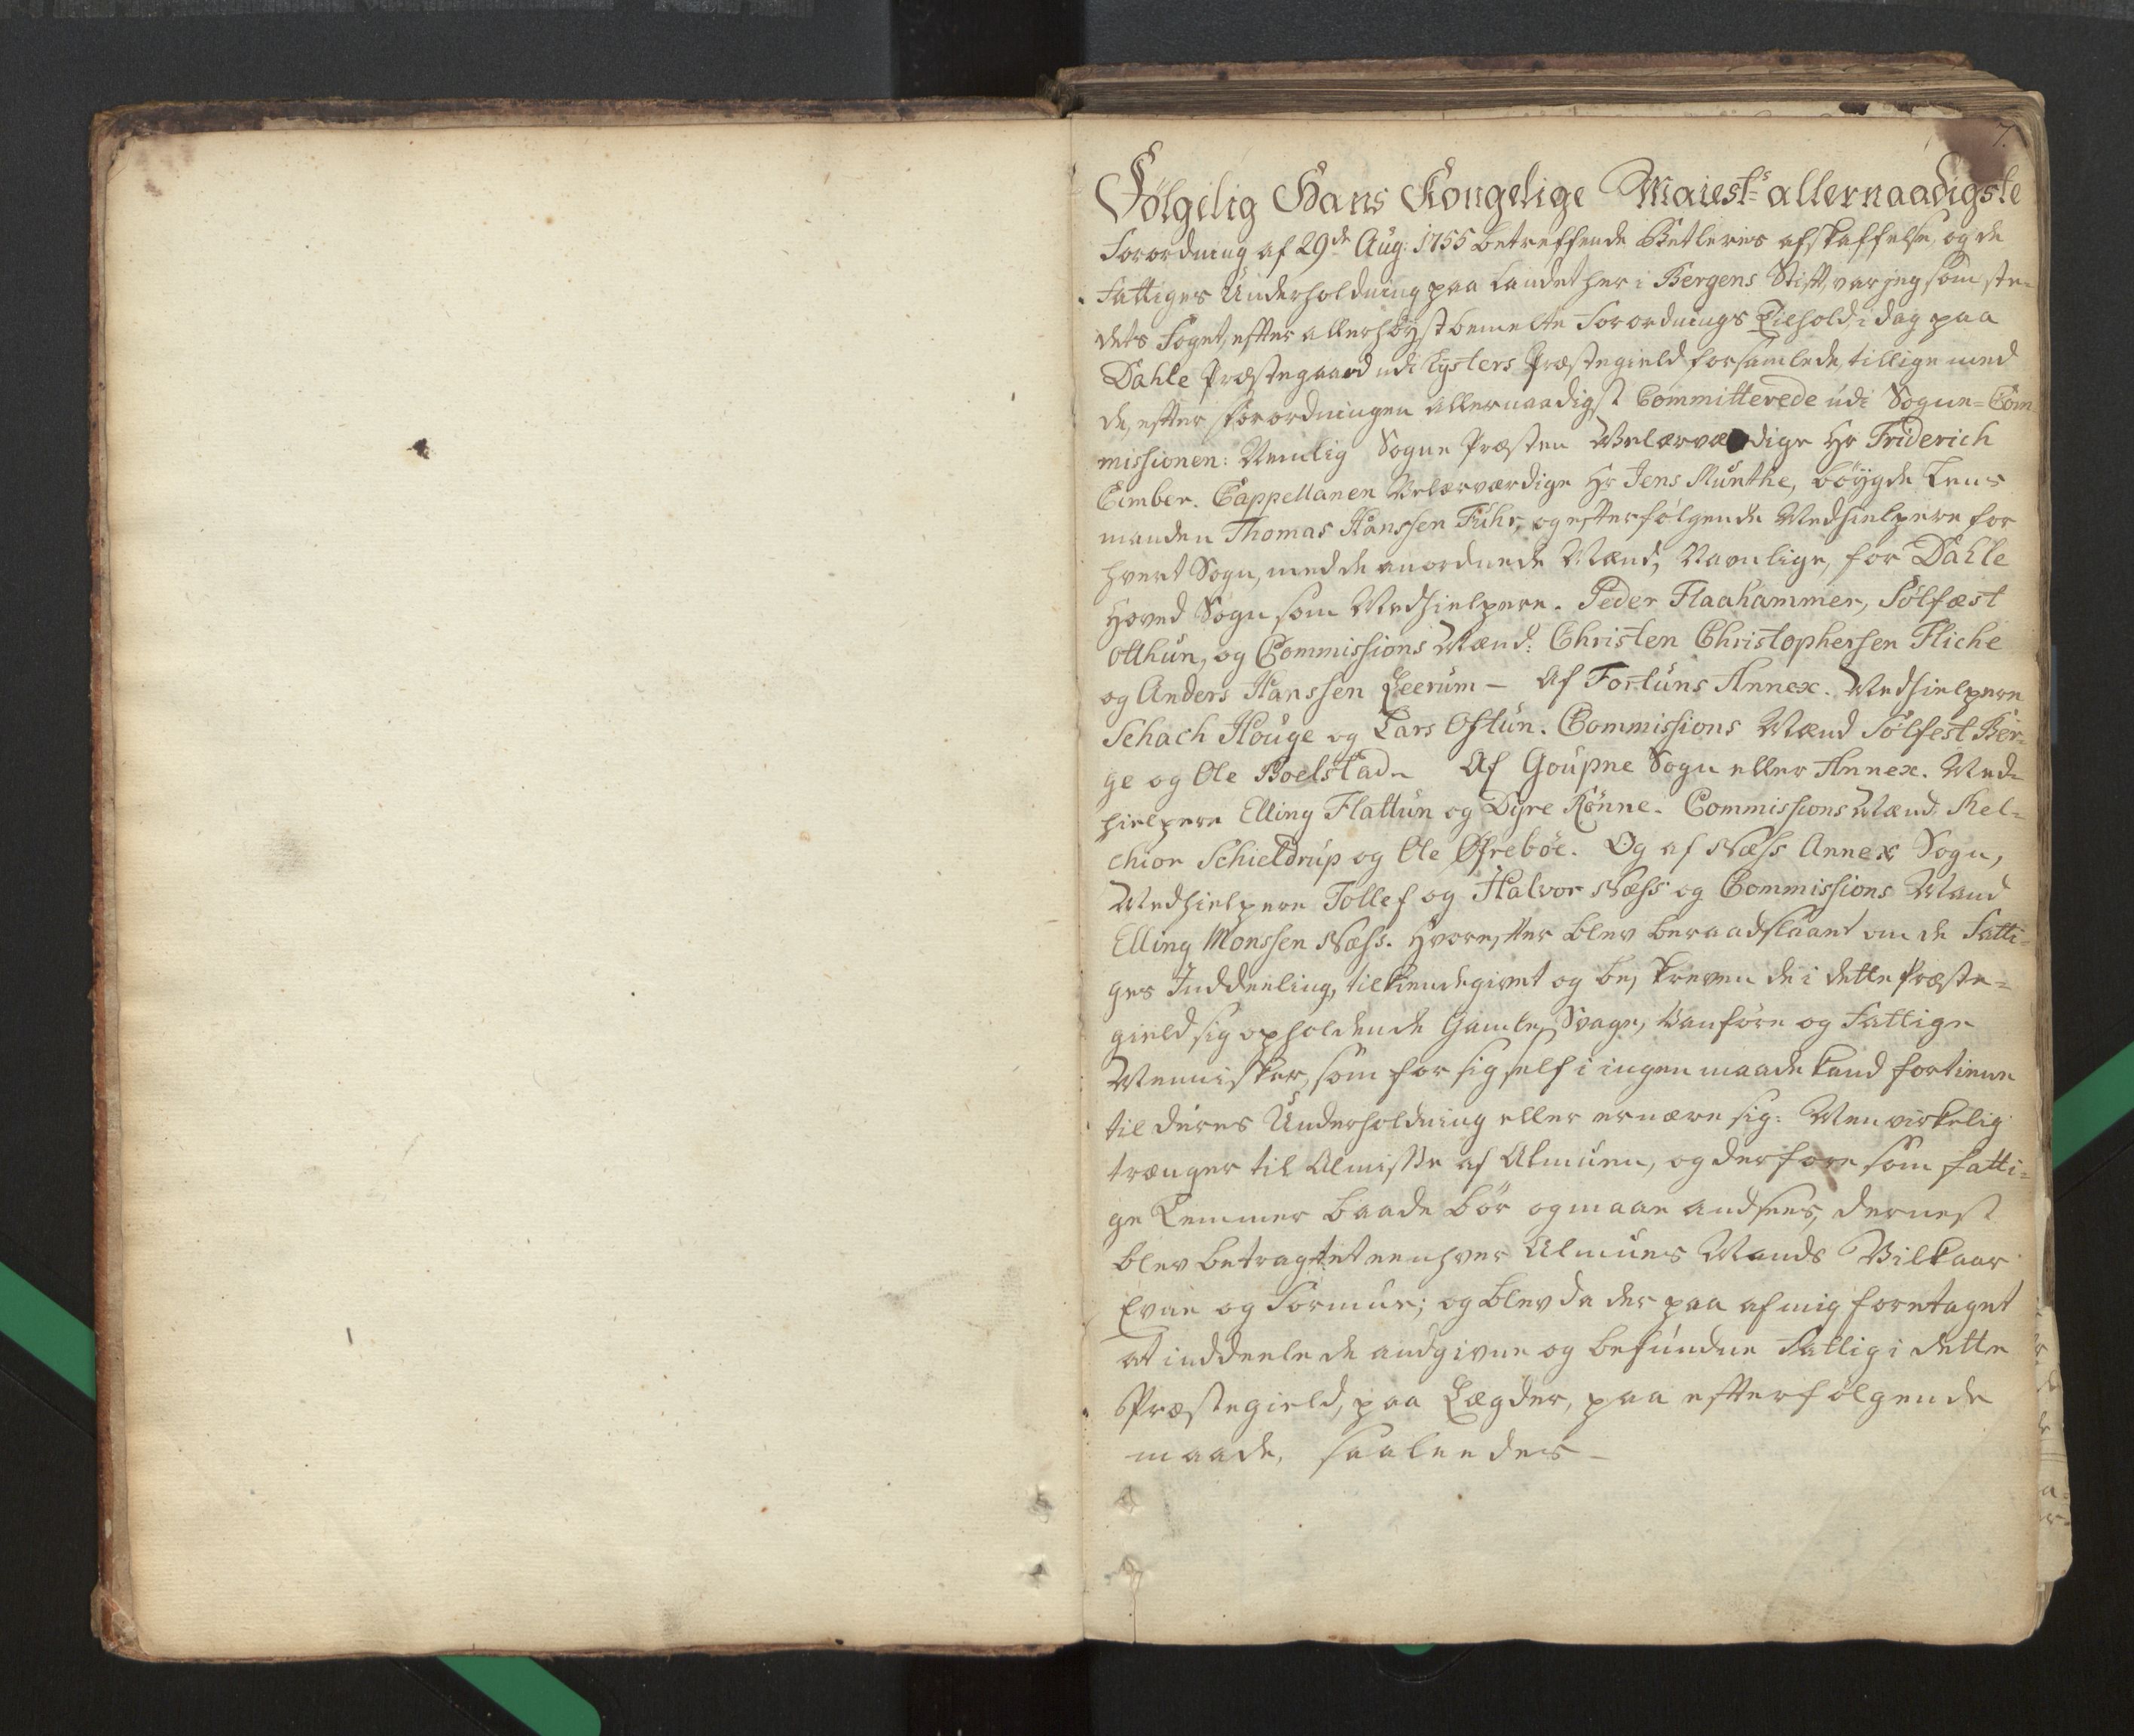 7.
Følgelig Hans Kongelige Maiest:s allernaadigste
Forordning af 29de Aug: 1755 betreffende Betleries afskaffelse, og de
Fattiges Underholdning paa Landet her i Bergens Stift, var jeg som ste-
dets Foget, efter allerhøyst bemelte Forordnings Tilhold i dag paa
Dahle Præstegaard udi Lysters Præstegield forsamlede, tillige med
de, efter Forordningen allernaadigst Committerede udi Sogne-Com
missionen: Nemlig Sogne Præsten Velærværdige Hr Friderich
Cimber. Cappellanen Velærværdige Hr Jens Munthe, bøygde Lens
manden Thomas Hanssen Fuhr, og efterfølgende Medhielpere for
hvert Sogn, med de anordnede Mænd, Navnlige, for Dahle
Hoved Sogn som Medhielpere. Peder Flaahammer, Sølfæst
Otthun, og Commissions Mænd: Christen Christophersen Fliche
og Anders Hanssen Leerum - Af Fortuns Annex. Medhielpere
Schach Houge og Lars Oftun. Commissions Mænd Sølfest Ber-
ge og Ole Boelstad. Af Goupne Sogn eller Annex. Med-
hielpere Elling Flattun og Dyre Rønne. Commissions Mænd, Mel-
chior Schieldrup og Ole Øfrebøe. Og af Næss Annex Sogn,
Medhielpere Tollef og Halvor Næss og Commissions Mand
Elling Monssen Næss. Hvorefter blev beraadslaaet om de Fatti-
ges Inddeeling, tilkiendegivet og beskreven de i dette Præste-
gield sig opholdende Gamle, Svage, Vanføre og Fattige
Mennisker, som for sig self i ingen maade kand fortiene
til deres Underholdning eller ernære sig: Men virkelig
trænger til Almisse af Almuen, og derfore som fatti-
ge Lemmer baade bør og maae andsees, dernest
blev betragtet eenhver Almues Mands Vilkaar
Evne og Formue; og blev da der paa af mig foretaget
at inddeele de andgivne og befundne Fattig i dette
Præstegield, paa Lægder, paa efterfølgende
maade, saaleedes -